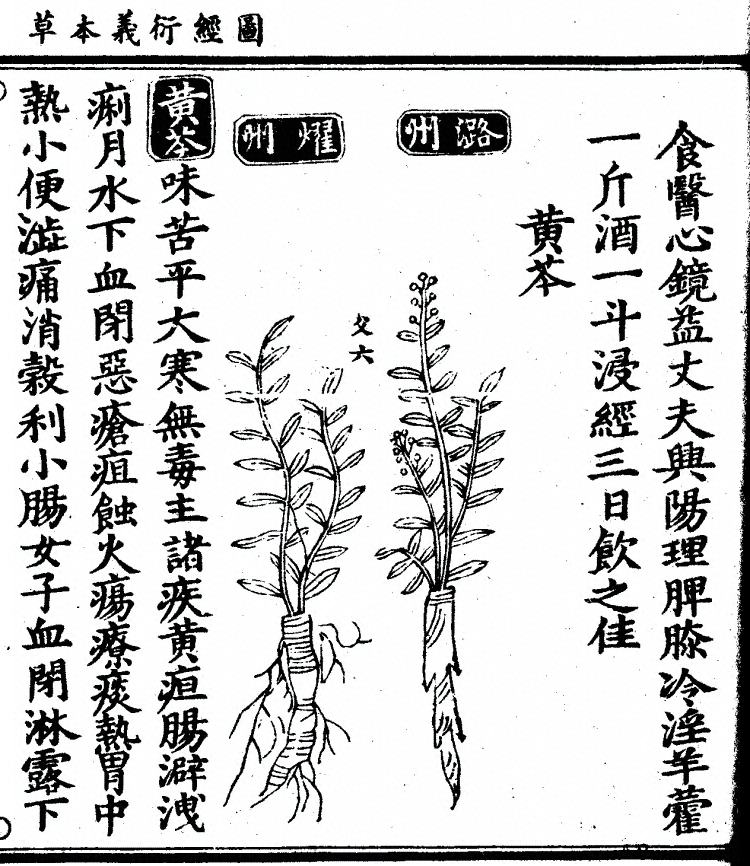 圖經衍義本草
食醫心鏡益丈夫興陽理脾膝冷淫羊藿
一斤酒一斗浸經三日飲之佳
黄芩
潞州
父六
耀州
黄芩味苦平大寒無毒主諸疾黄疸腸澼洩
痢月水下血閉惡瘡疽蝕火瘍療痰熱胃中
熱小便澁痛消穀利小腸女子血閉淋露下